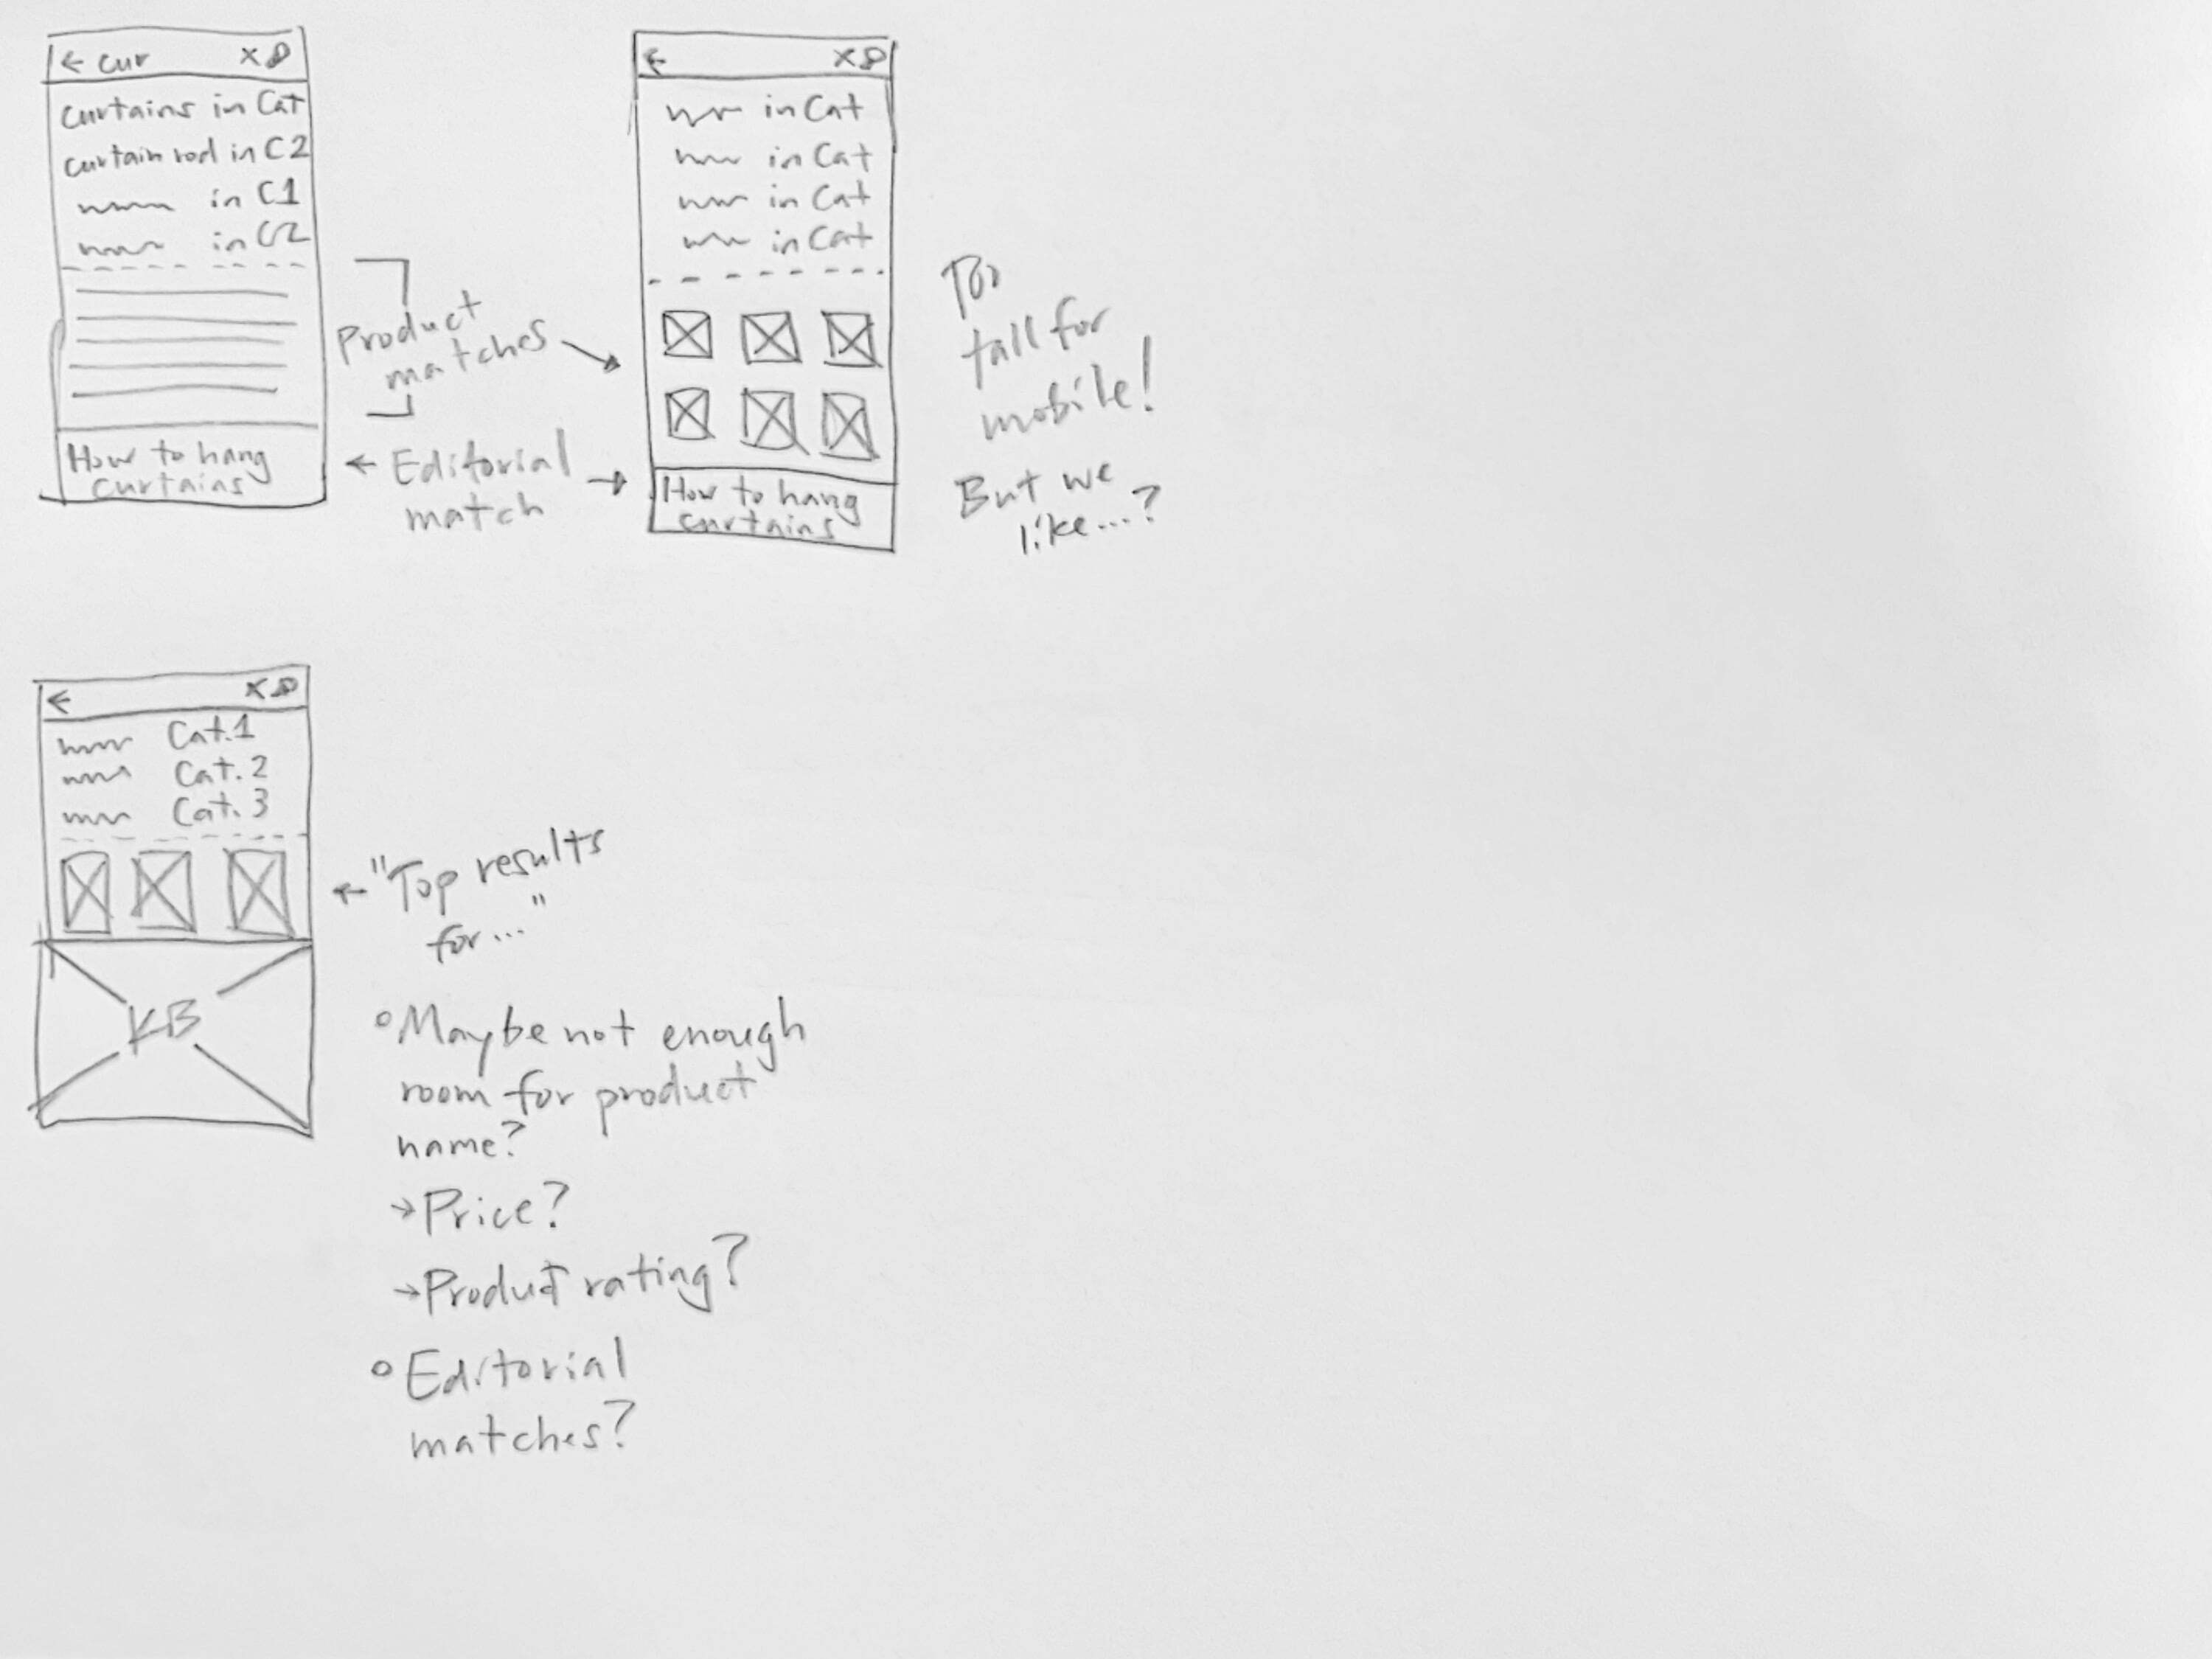 ← cur X
curtains in Cat
curtain rod in C2
in C1
in C2
How to hang
curtains
Product
matches
← Editorial →
match
← X
in Cat
in Cat
in Cat
in Cat
How to hang
curtains
Too
tall for
mobile!
But we
like...?
← X
Cat.1
Cat.2
Cat.3
KB
← "Top results
for..."
◦ Maybe not enough
room for product
name?
→ Price?
→ Product rating?
◦ Editorial
matches?